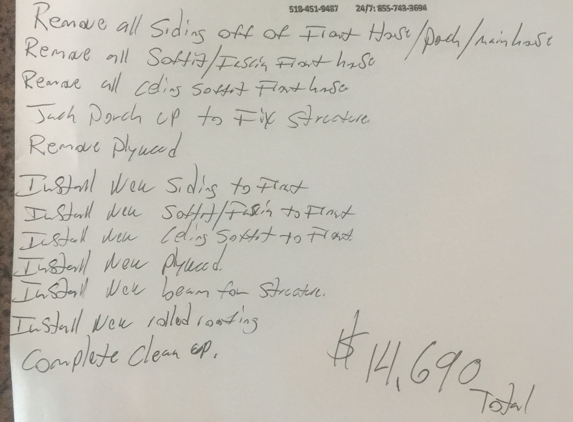 518-451-9487 24/7: 855-743-3694
Remove all Siding off of Front House/Porch/mainhouse
Remove all Soffit/Fascia Front house
Remove all Celing Soffit Front house
Jack Porch up to Fix Structure
Remove Plywood
Install New Siding to Front
Install New Soffit/Fascia to Front
Install New Celing Soffit to Front.
Install New Plywood.
Install New beam for Structure.
Install New rolled roofing
Complete Clean up.
$14,690
Total